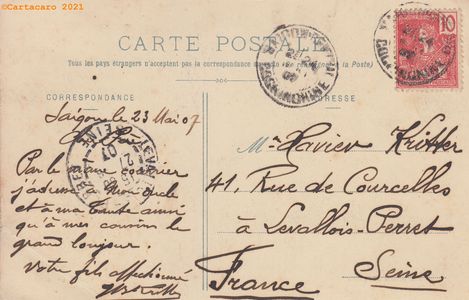 ©Cartacaro 2021
CARTE POSTALE
Tous les pays étrangers n'acceptent pas la correspondance au recto (à la Poste)
CORRESPONDANCE
ADRESSE
10
COCHINCHINE
Saigon le 23 Mai 07
Par le bon courrier
j'adresse à mon oncle
et à ma tante ainsi
qu'à mes cousins le
grand bonjour.
Votre fils affectionné
Mr Xavier Kritter
41, Rue de Courcelles
à Levallois-Perret
Seine
France